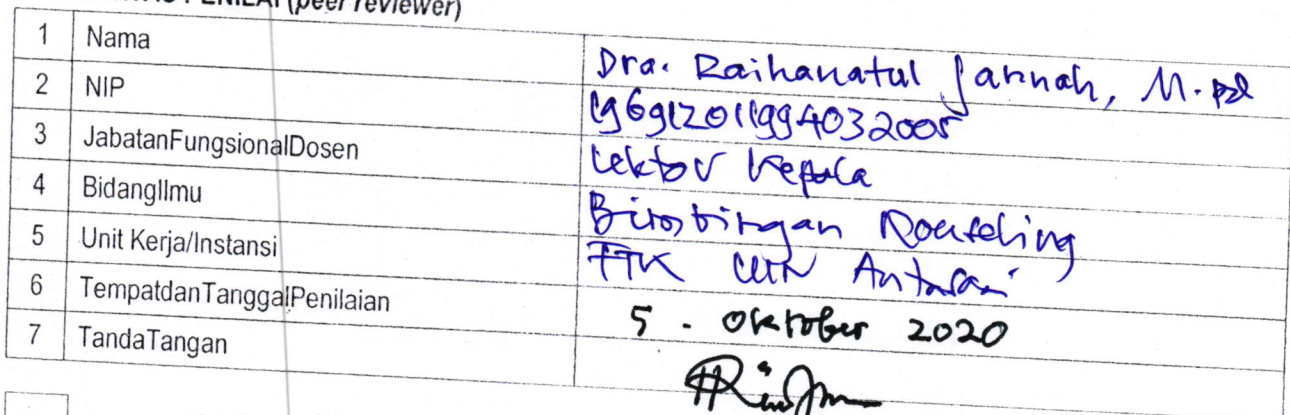 PENILAI (peer reviewer)
1 Nama Dra. Raihanatul Jannah, M.Pd
2 NIP 196912011994032005
3 JabatanFungsionalDosen Lektor Kepala
4 BidangIlmu Bimbingan Konseling
5 Unit Kerja/Instansi FTK UIN Antasari
6 TempatdanTanggalPenilaian 5 . Oktober 2020
7 TandaTangan